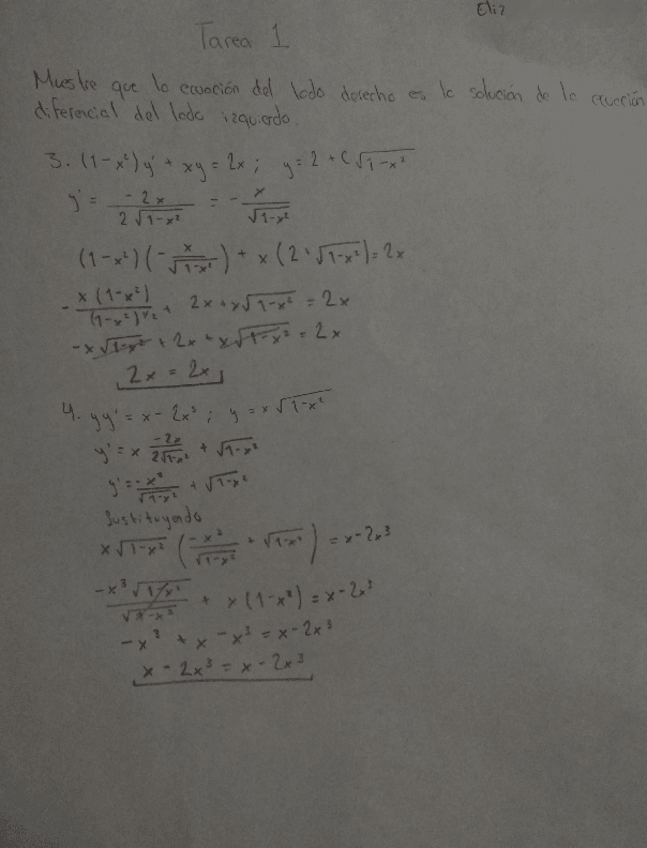 Eliz
Tarea 1
Muestre que la ecuación del lado derecho es la solución de la ecuación
diferencial del lado izquierdo.
3. (1-x²)y' + xy = 2x ; y = 2 + C√(1-x²)
y' = -2x / 2√(1-x²) = - x/√(1-x²)
(1-x²)(- x/√(1-x²)) + x(2+√(1-x²)) = 2x
- x(1-x²)/(1-x²)^1/2 + 2x + x√(1-x²) = 2x
-x√(1-x²) + 2x + x√(1-x²) = 2x
2x = 2x
4. yy' = x - 2x³ ; y = x√(1-x²)
y' = x -2x/2√(1-x²) + √(1-x²)
y' = -x²/√(1-x²) + √(1-x²)
Sustituyendo
x√(1-x²) (-x²/√(1-x²) + √(1-x²)) = x-2x³
-x³√(1-x²)/√(1-x²) + x(1-x²) = x-2x³
-x³ + x - x³ = x-2x³
x - 2x³ = x - 2x³